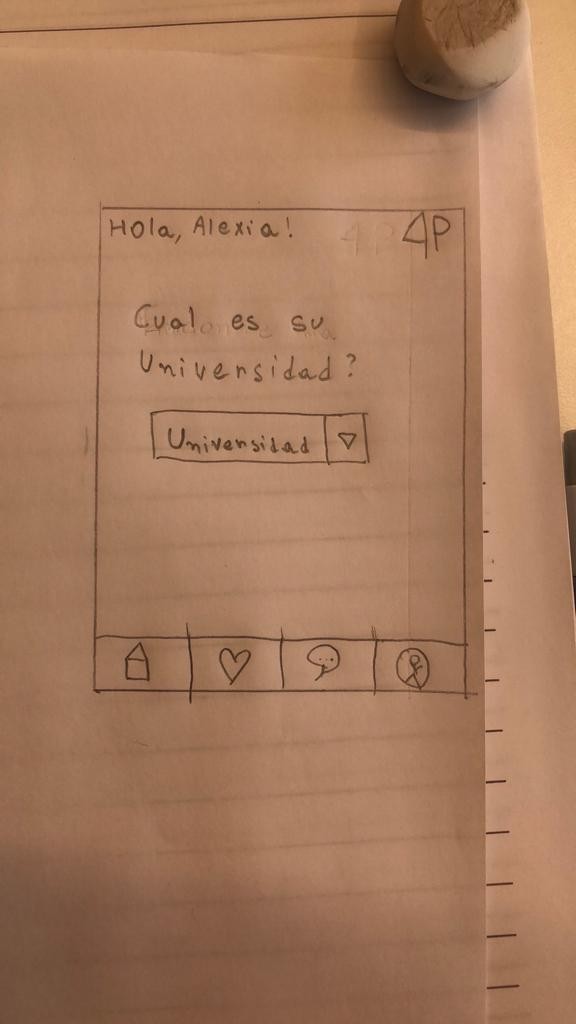 Hola, Alexia!
4P
Cual es su
Universidad?
Universidad